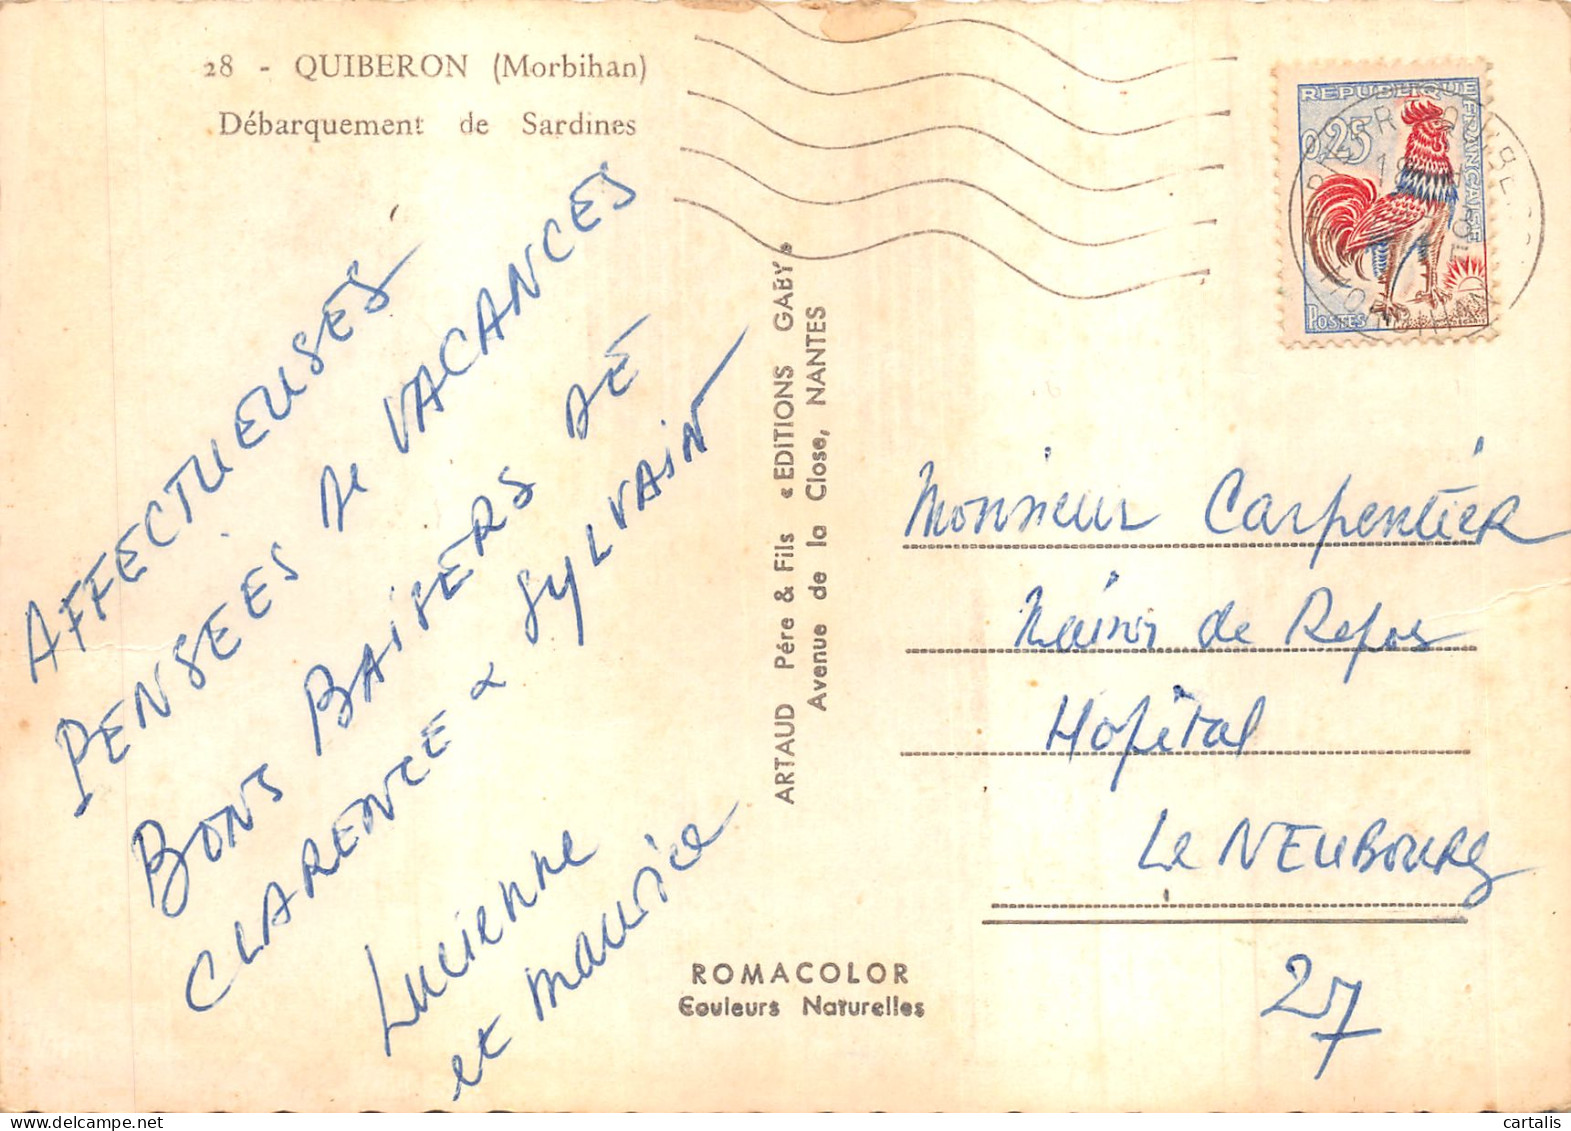 28 - QUIBERON (Morbihan)
Débarquement de Sardines
AFFECTUEUSES
PENSEES de VACANCES
BONS BAISERS DE
CLARENCE & SYLVAIN
Lucienne
et maurice
ARTAUD Père & Fils « EDITIONS GABY »
Avenue de la Close, NANTES
ROMACOLOR
Couleurs Naturelles
REPUBLIQUE
FRANÇAISE
0,25
POSTES
Monsieur Carpentier
de Repos
Hopital
Le NEUBOURG
27
cartalis
delcampe.net